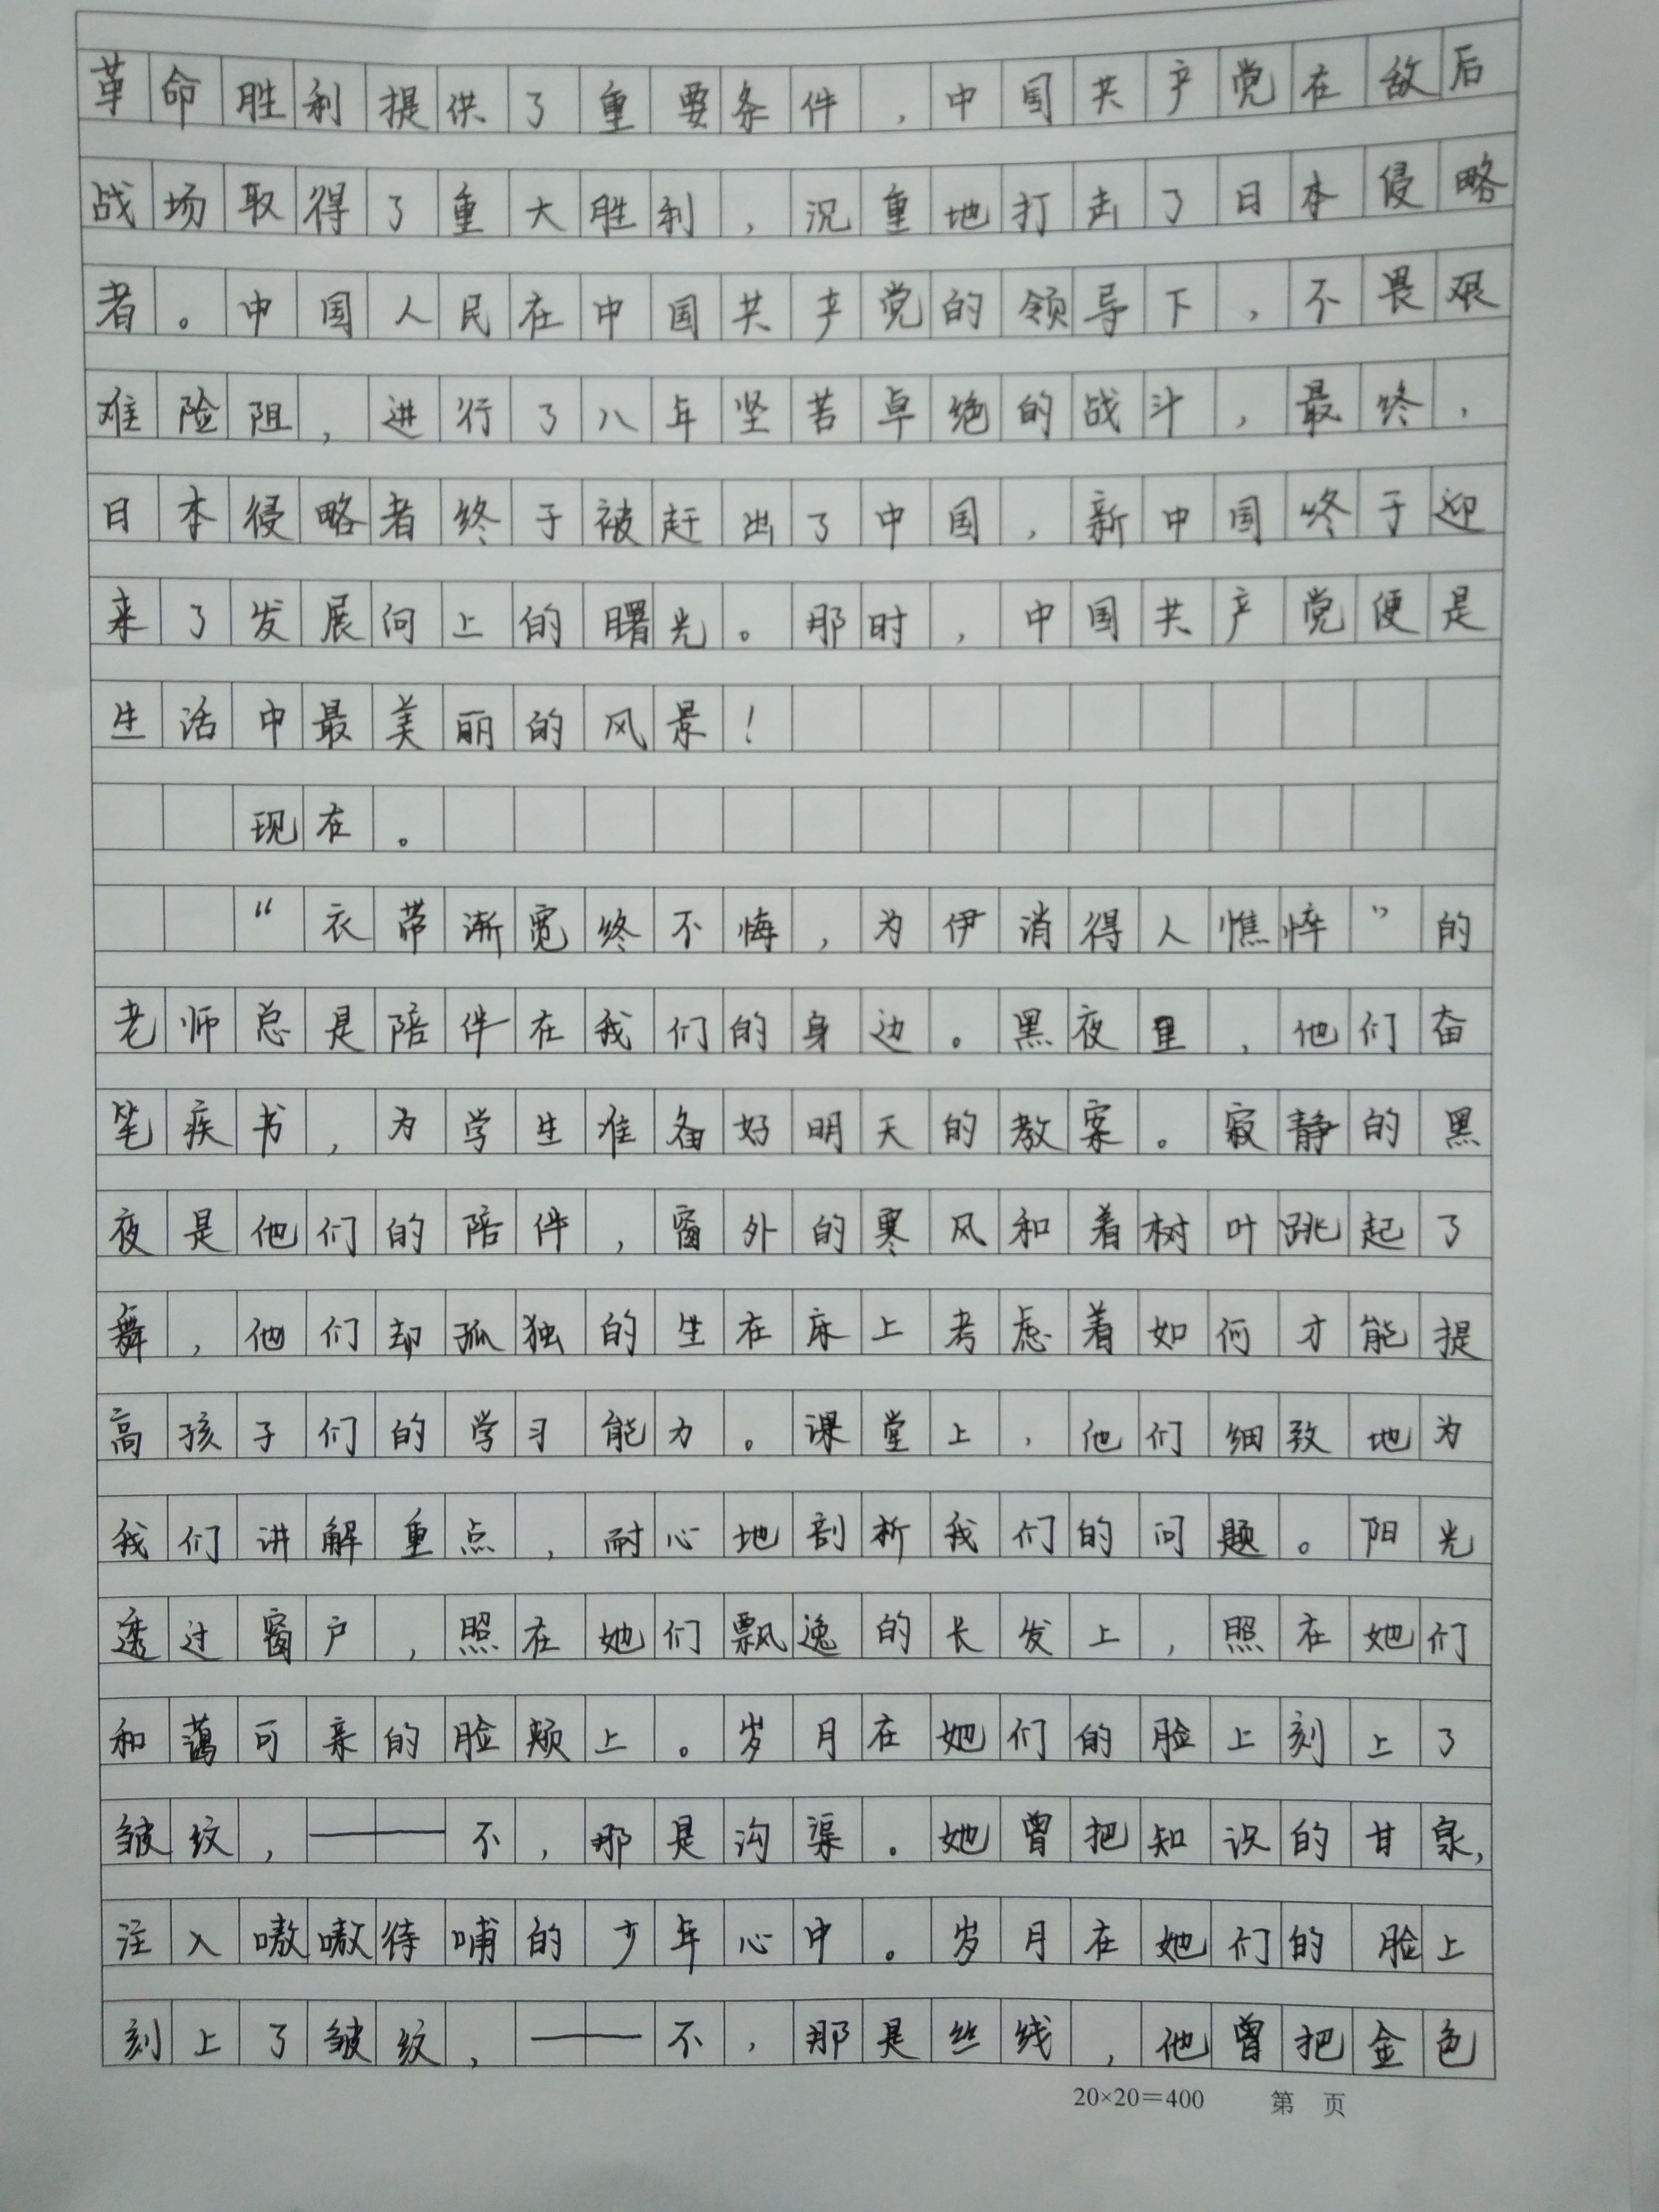 革命胜利提供了重要条件，中国共产党在敌后
战场取得了重大胜利，沉重地打击了日本侵略
者。中国人民在中国共产党的领导下，不畏艰
难险阻，进行了八年坚苦卓绝的战斗，最终，
日本侵略者终于被赶出了中国，新中国终于迎
来了发展向上的曙光。那时，中国共产党便是
生活中最美丽的风景！
现在。
“衣带渐宽终不悔，为伊消得人憔悴”的
老师总是陪伴在我们的身边。黑夜里，他们奋
笔疾书，为学生准备好明天的教案。寂静的黑
夜是他们的陪伴，窗外的寒风和着树叶跳起了
舞，他们却孤独的坐在床上考虑着如何才能提
高孩子们的学习能力。课堂上，他们细致地为
我们讲解重点，耐心地剖析我们的问题。阳光
透过窗户，照在她们飘逸的长发上，照在她们
和蔼可亲的脸颊上。岁月在她们的脸上刻上了
皱纹，——不，那是沟渠。她曾把知识的甘泉，
注入嗷嗷待哺的少年心中。岁月在她们的脸上
刻上了皱纹，——不，那是丝线，他曾把金色
20×20＝400 第 页